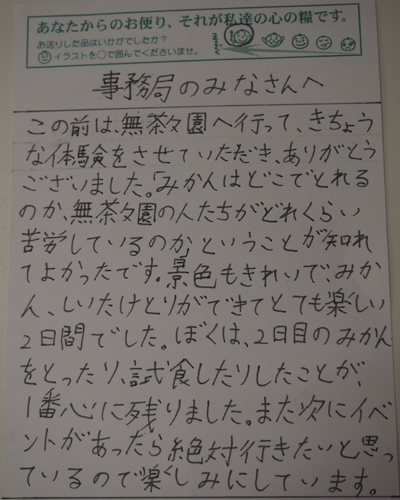 あなたからのお便り、それが私達の心の糧です。
お送りした品はいかがでしたか？
イラストを○で囲んでくださいませ。
事務局のみなさんへ
この前は、無茶々園へ行って、きちょう
な体験をさせていただき、ありがとう
ございました。「みかんはどこでとれる
のか、無茶々園の人たちがどれくらい
苦労しているのか、ということが知れ
てよかったです。景色もきれいで、みか
ん、しいたけとりができてとても楽しい
2日間でした。ぼくは、2日目のみかん
をとったり、試食したりしたことが、
1番心に残りました。また次にイベ
ントがあったら絶対行きたいと思っ
ているので楽しみにしています。